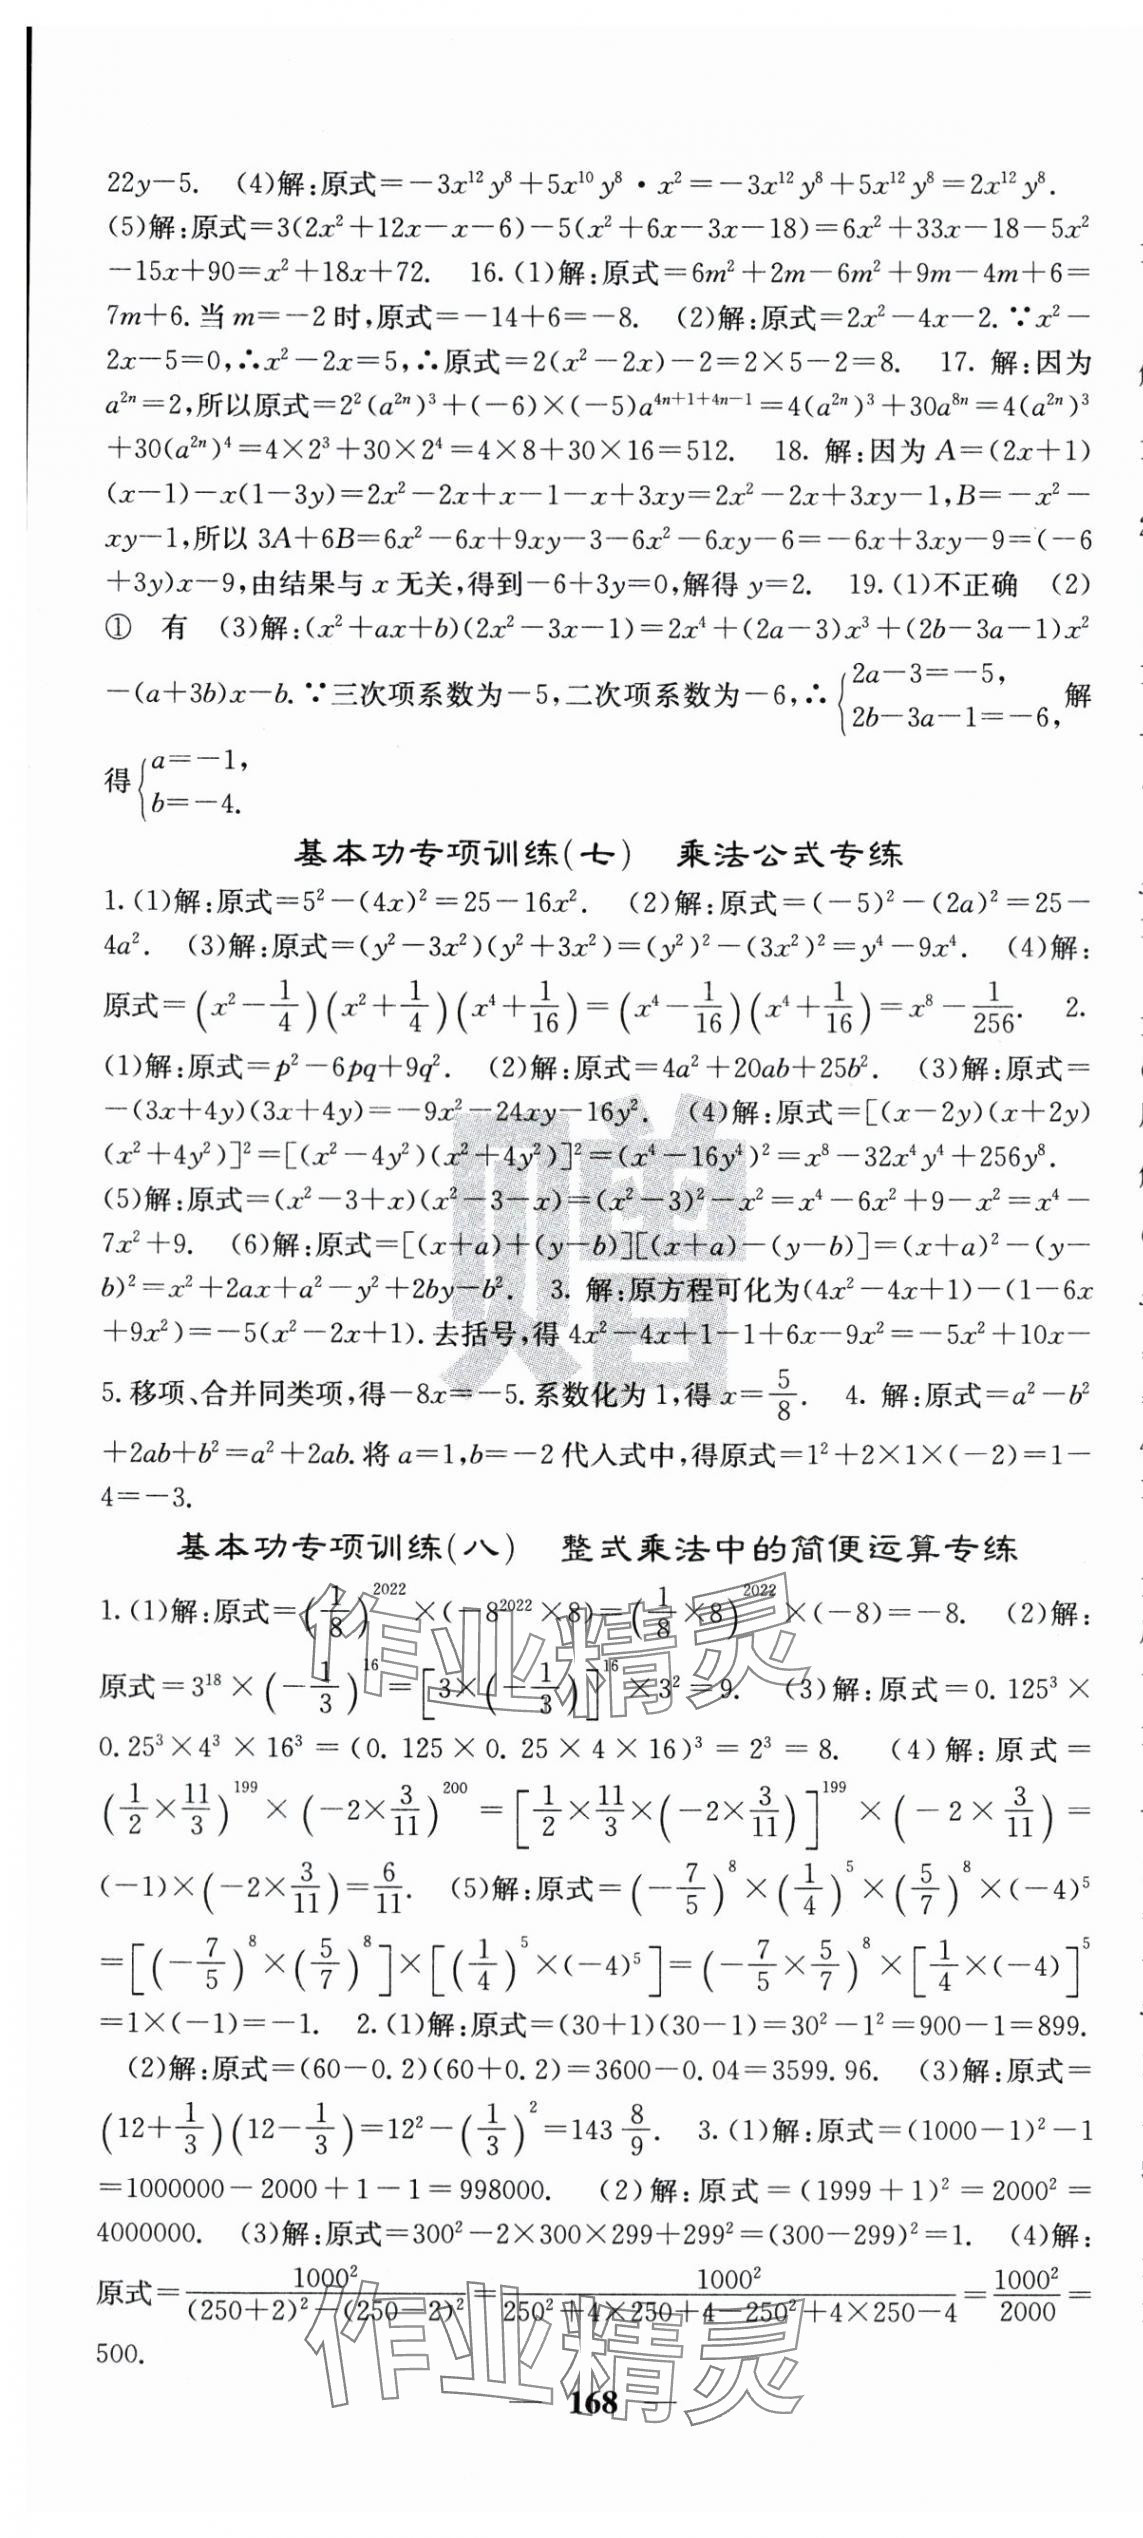 22y−5. (4)解:原式=−3x¹²y⁸+5x¹⁰y⁸·x²=−3x¹²y⁸+5x¹²y⁸=2x¹²y⁸.
(5)解:原式=3(2x²+12x−x−6)−5(x²+6x−3x−18)=6x²+33x−18−5x²
−15x+90=x²+18x+72. 16.(1)解:原式=6m²+2m−6m²+9m−4m+6=
7m+6.当m=−2时,原式=−14+6=−8. (2)解:原式=2x²−4x−2.∵x²−
2x−5=0,∴x²−2x=5,∴原式=2(x²−2x)−2=2×5−2=8. 17. 解:因为
a²ⁿ=2,所以原式=2²(a²ⁿ)³+(−6)×(−5)a⁴ⁿ⁺¹⁺⁴ⁿ⁻¹=4(a²ⁿ)³+30a⁸ⁿ=4(a²ⁿ)³
+30(a²ⁿ)⁴=4×2³+30×2⁴=4×8+30×16=512. 18. 解:因为A=(2x+1)
(x−1)−x(1−3y)=2x²−2x+x−1−x+3xy=2x²−2x+3xy−1,B=−x²−
xy−1,所以3A+6B=6x²−6x+9xy−3−6x²−6xy−6=−6x+3xy−9=(−6
+3y)x−9,由结果与x无关,得到−6+3y=0,解得y=2. 19.(1)不正确 (2)
① 有 (3)解:(x²+ax+b)(2x²−3x−1)=2x⁴+(2a−3)x³+(2b−3a−1)x²
−(a+3b)x−b.∵三次项系数为−5,二次项系数为−6,∴{2a−3=−5, 2b−3a−1=−6,解
得{a=−1, b=−4.
基本功专项训练(七) 乘法公式专练
1.(1)解:原式=5²−(4x)²=25−16x². (2)解:原式=(−5)²−(2a)²=25−
4a². (3)解:原式=(y²−3x²)(y²+3x²)=(y²)²−(3x²)²=y⁴−9x⁴. (4)解:
原式=(x²−1/4)(x²+1/4)(x⁴+1/16)=(x⁴−1/16)(x⁴+1/16)=x⁸−1/256. 2.
(1)解:原式=p²−6pq+9q². (2)解:原式=4a²+20ab+25b². (3)解:原式=
−(3x+4y)(3x+4y)=−9x²−24xy−16y². (4)解:原式=[(x−2y)(x+2y)
(x²+4y²)]²=[(x²−4y²)(x²+4y²)]²=(x⁴−16y⁴)²=x⁸−32x⁴y⁴+256y⁸.
(5)解:原式=(x²−3+x)(x²−3−x)=(x²−3)²−x²=x⁴−6x²+9−x²=x⁴−
7x²+9. (6)解:原式=[(x+a)+(y−b)][(x+a)−(y−b)]=(x+a)²−(y−
b)²=x²+2ax+a²−y²+2by−b². 3. 解:原方程可化为(4x²−4x+1)−(1−6x
+9x²)=−5(x²−2x+1).去括号,得4x²−4x+1−1+6x−9x²=−5x²+10x−
5.移项、合并同类项,得−8x=−5.系数化为1,得x=5/8. 4. 解:原式=a²−b²
+2ab+b²=a²+2ab.将a=1,b=−2代入式中,得原式=1²+2×1×(−2)=1−
4=−3.
基本功专项训练(八) 整式乘法中的简便运算专练
1.(1)解:原式=(1/8)²⁰²²×(−8²⁰²²×8)=(1/8×8)²⁰²²×(−8)=−8. (2)解:
原式=3¹⁸×(−1/3)¹⁶=[3×(−1/3)]¹⁶×3²=9. (3)解:原式=0.125³×
0.25³×4³×16³=(0.125×0.25×4×16)³=2³=8. (4)解:原式=
(1/2×11/3)¹⁹⁹×(−2×3/11)²⁰⁰=[1/2×11/3×(−2×3/11)]¹⁹⁹×(−2×3/11)=
(−1)×(−2×3/11)=6/11. (5)解:原式=(−7/5)⁸×(1/4)⁵×(5/7)⁸×(−4)⁵
=[(−7/5)⁸×(5/7)⁸]×[(1/4)⁵×(−4)⁵]=(−7/5×5/7)⁸×[1/4×(−4)]⁵
=1×(−1)=−1. 2.(1)解:原式=(30+1)(30−1)=30²−1²=900−1=899.
(2)解:原式=(60−0.2)(60+0.2)=3600−0.04=3599.96. (3)解:原式=
(12+1/3)(12−1/3)=12²−(1/3)²=143 8/9. 3.(1)解:原式=(1000−1)²−1
=1000000−2000+1−1=998000. (2)解:原式=(1999+1)²=2000²=
4000000. (3)解:原式=300²−2×300×299+299²=(300−299)²=1. (4)解:
原式=1000²/(250+2)²−(250−2)²=1000²/250²+4×250+4−250²+4×250−4=1000²/2000=
500.
— 168 —
赠
作业精灵
作业精灵